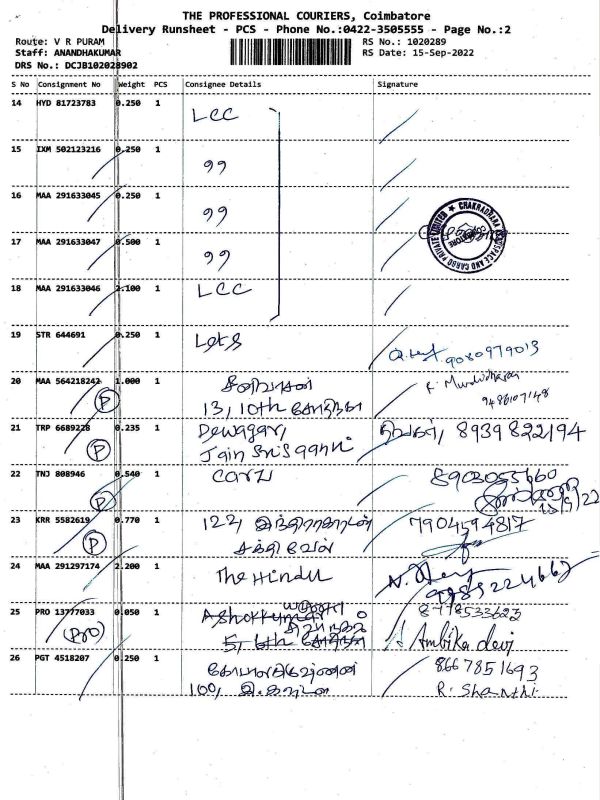 THE PROFESSIONAL COURIERS, Coimbatore
Delivery Runsheet - PCS - Phone No.:0422-3505555 - Page No.:2
Route: V R PURAM
RS No.: 1020289
Staff: ANANDHAKUMAR
RS Date: 15-Sep-2022
DRS No.: DCJB102028902
S No Consignment No Weight PCS Consignee Details Signature
14 HYD 81723783 0.250 1 LCC
15 IXM 502123216 0.250 1 99
16 MAA 291633045 0.250 1 99
17 MAA 291633047 0.500 1 99
18 MAA 291633046 2.100 1 LCC
19 STR 644691 0.250 1 9080979013
20 MAA 564218242 1.000 1 சீனிவாசன்
P 13, 10th 9486107148
21 TRP 6689228 0.235 1 Dewagar, 8939822194
P Jain
22 TNJ 808946 0.540 1 8903055660
P 15/9/22
23 KRR 5582619 0.770 1 122, இந்திராகார்டன் 7904594817
P சக்திவேல்
24 MAA 291297174 2.200 1 The HINDU
25 PRO 13777033 0.050 1 Ashokkumar 8778533623
(PRO) 5, 6th Ambika devi
26 PGT 4518207 0.250 1 8667851693
R. Shanthi